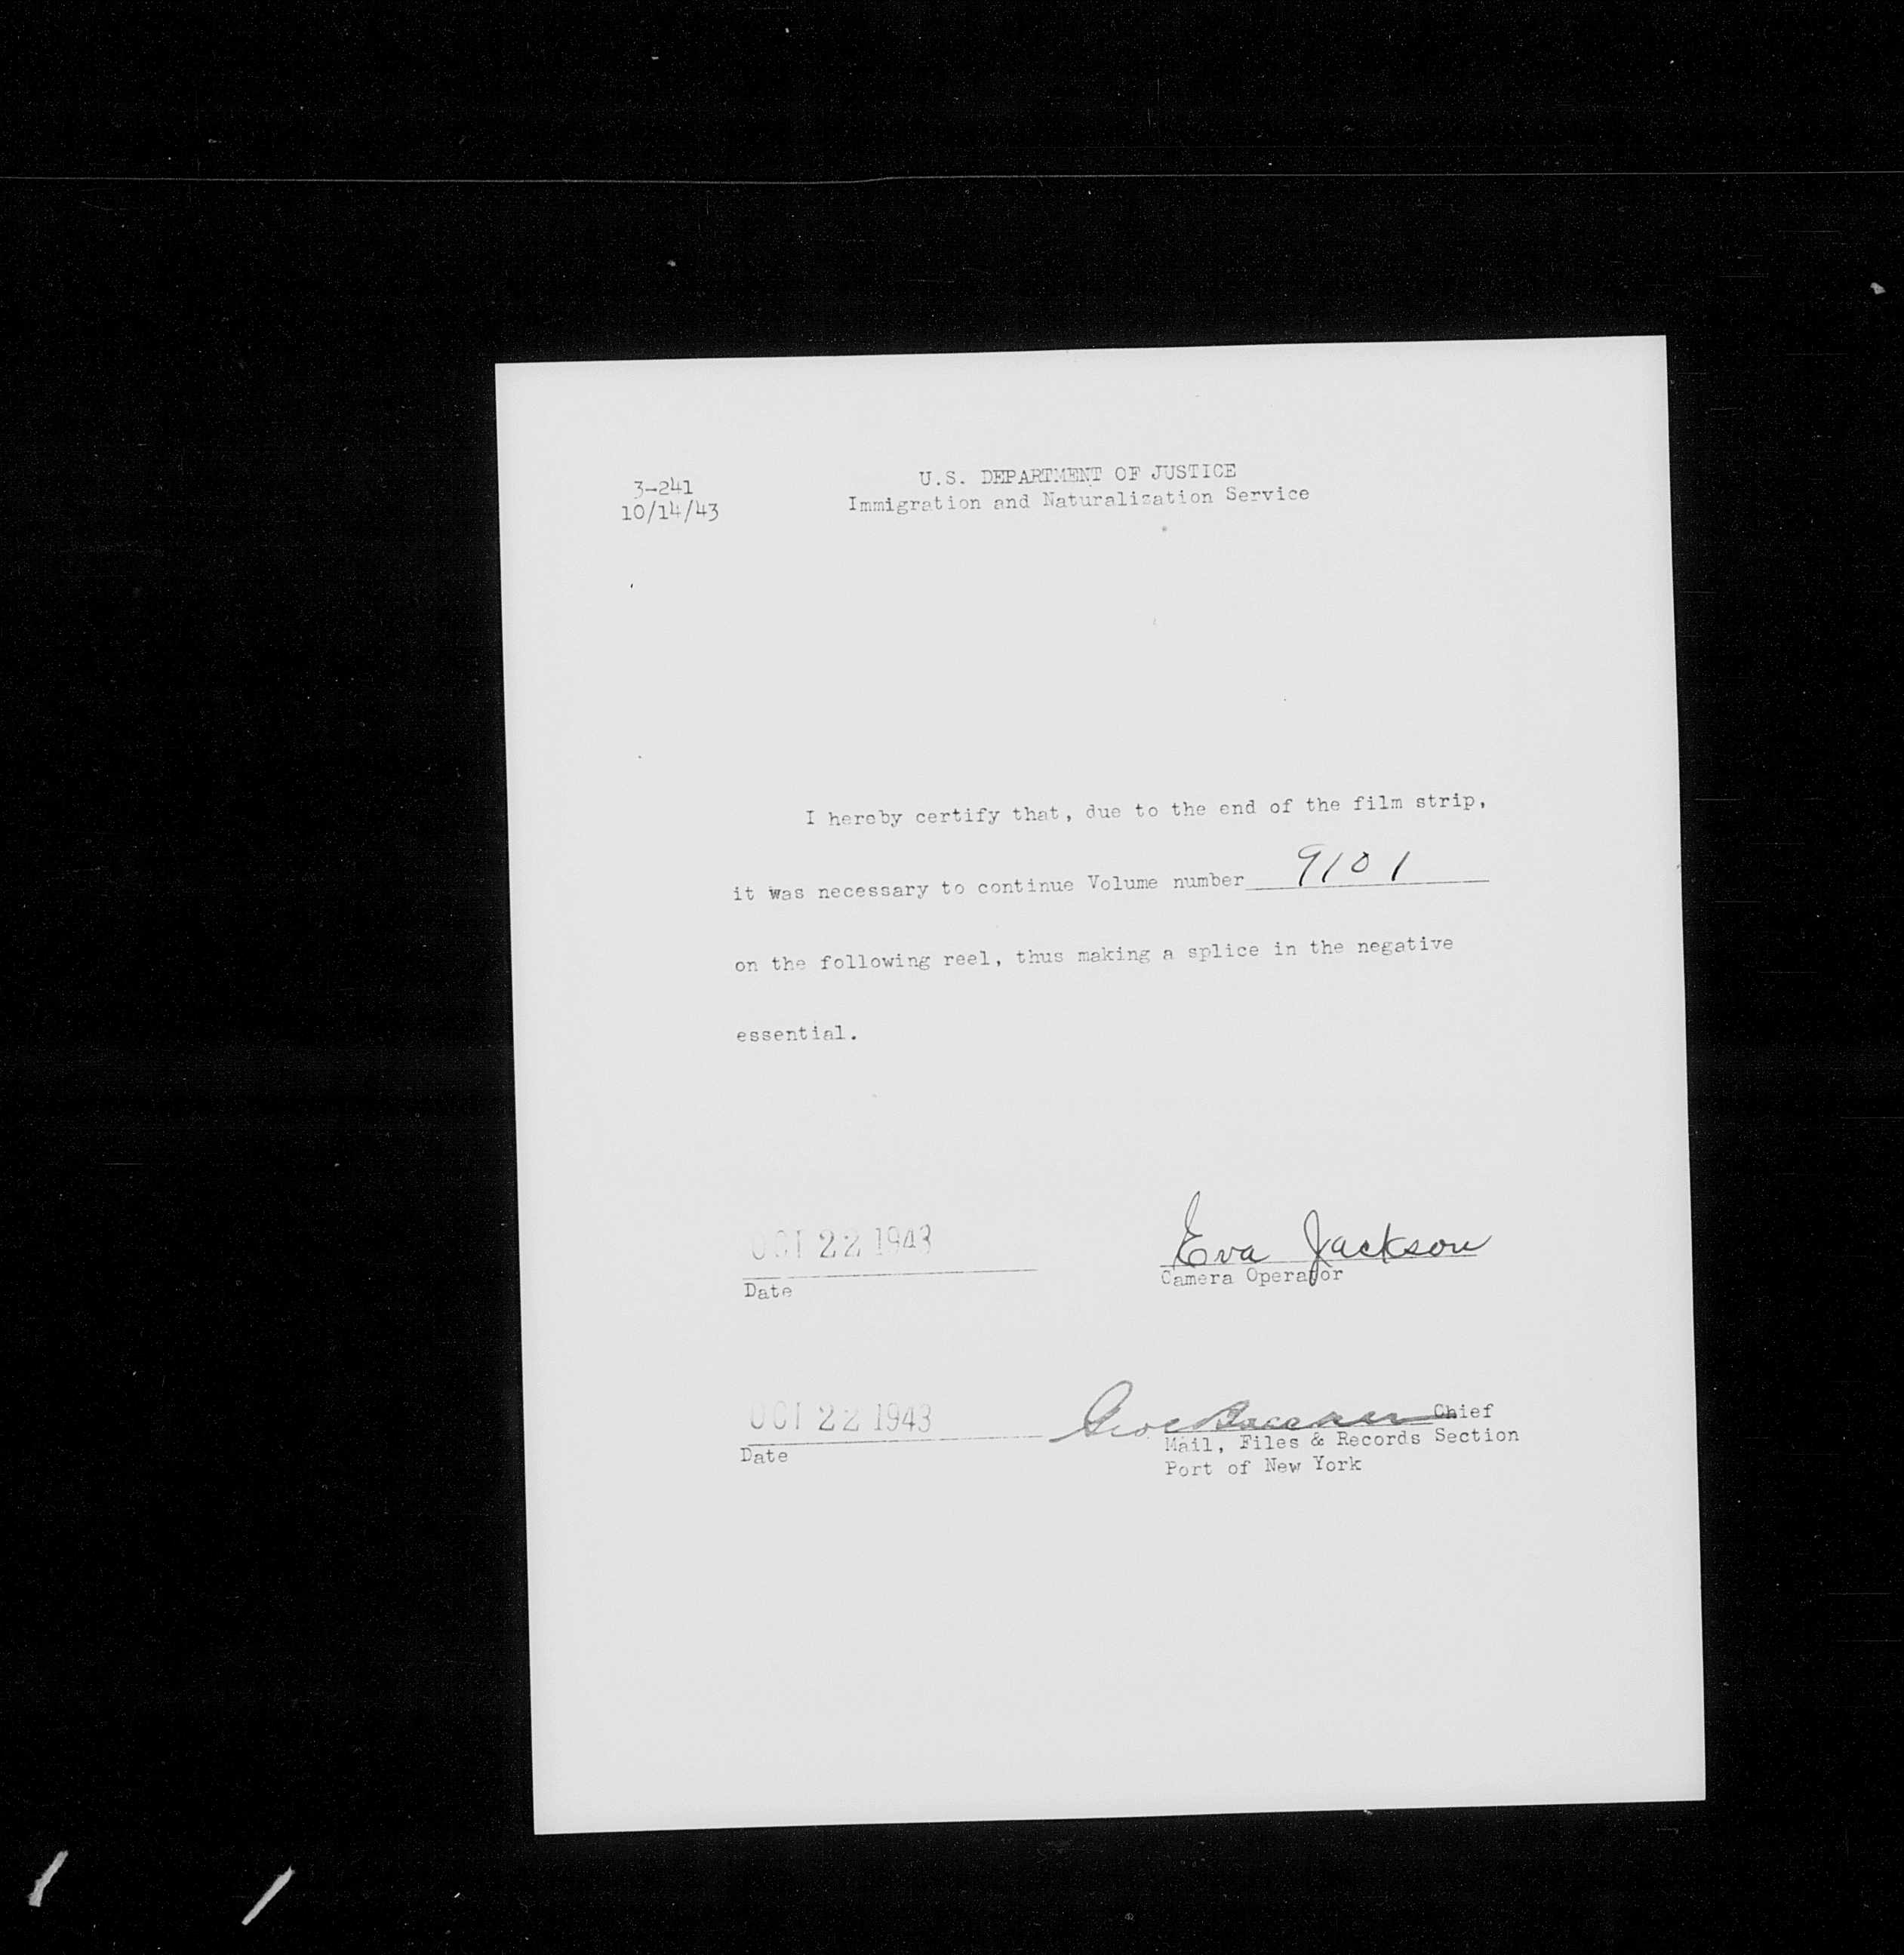 3-241
10/14/43
U.S. DEPARTMENT OF JUSTICE
Immigration and Naturalization Service
I hereby certify that, due to the end of the film strip,
it was necessary to continue Volume number 9101
on the following reel, thus making a splice in the negative
essential.
OCT 22 1943
Date
Eva Jackson
Camera Operator
OCT 22 1943
Date
Chief
Mail, Files & Records Section
Port of New York